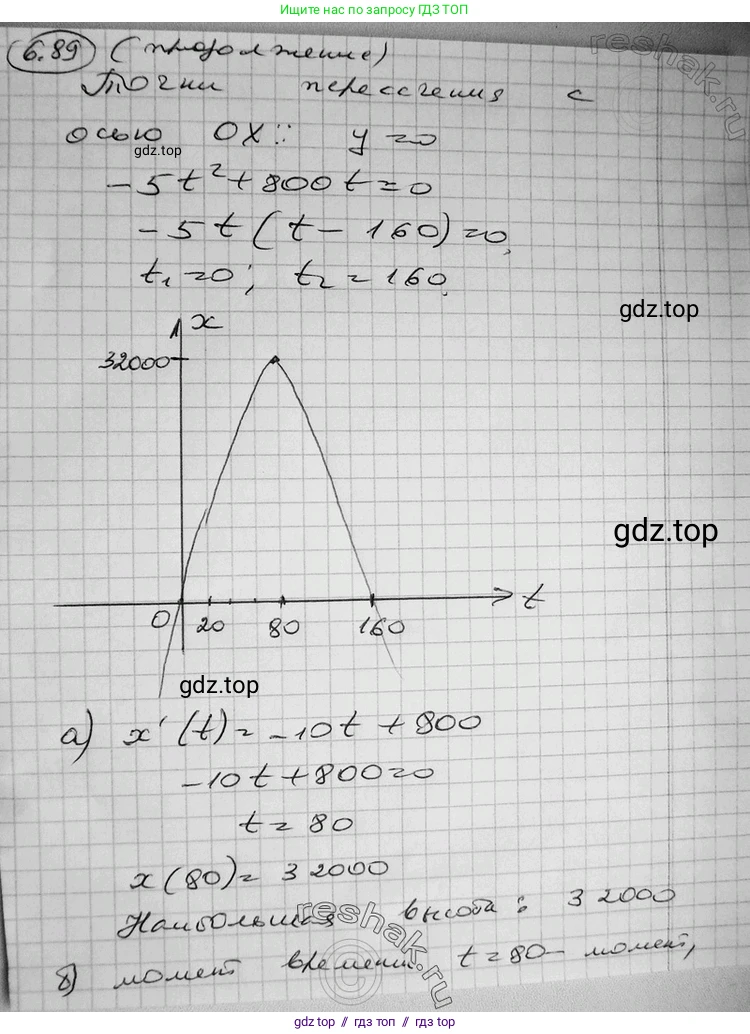 Ищите нас по запросу ГДЗ ТОП
6.89 (продолжение)
reshak.ru
Точки пересечения с
осью OX: y=0
gdz.top
-5t²+800t=0
-5t(t-160)=0,
t₁=0; t₂=160.
gdz.top
x
32000
gdz.top
0 20 80 160 t
gdz.top
а) x'(t)=-10t+800
-10t+800=0
t=80
x(80)=32000
Наибольшая высота: 32000
reshak.ru
б) момент времени t=80- момент,
gdz.top // гдз топ // gdz.top